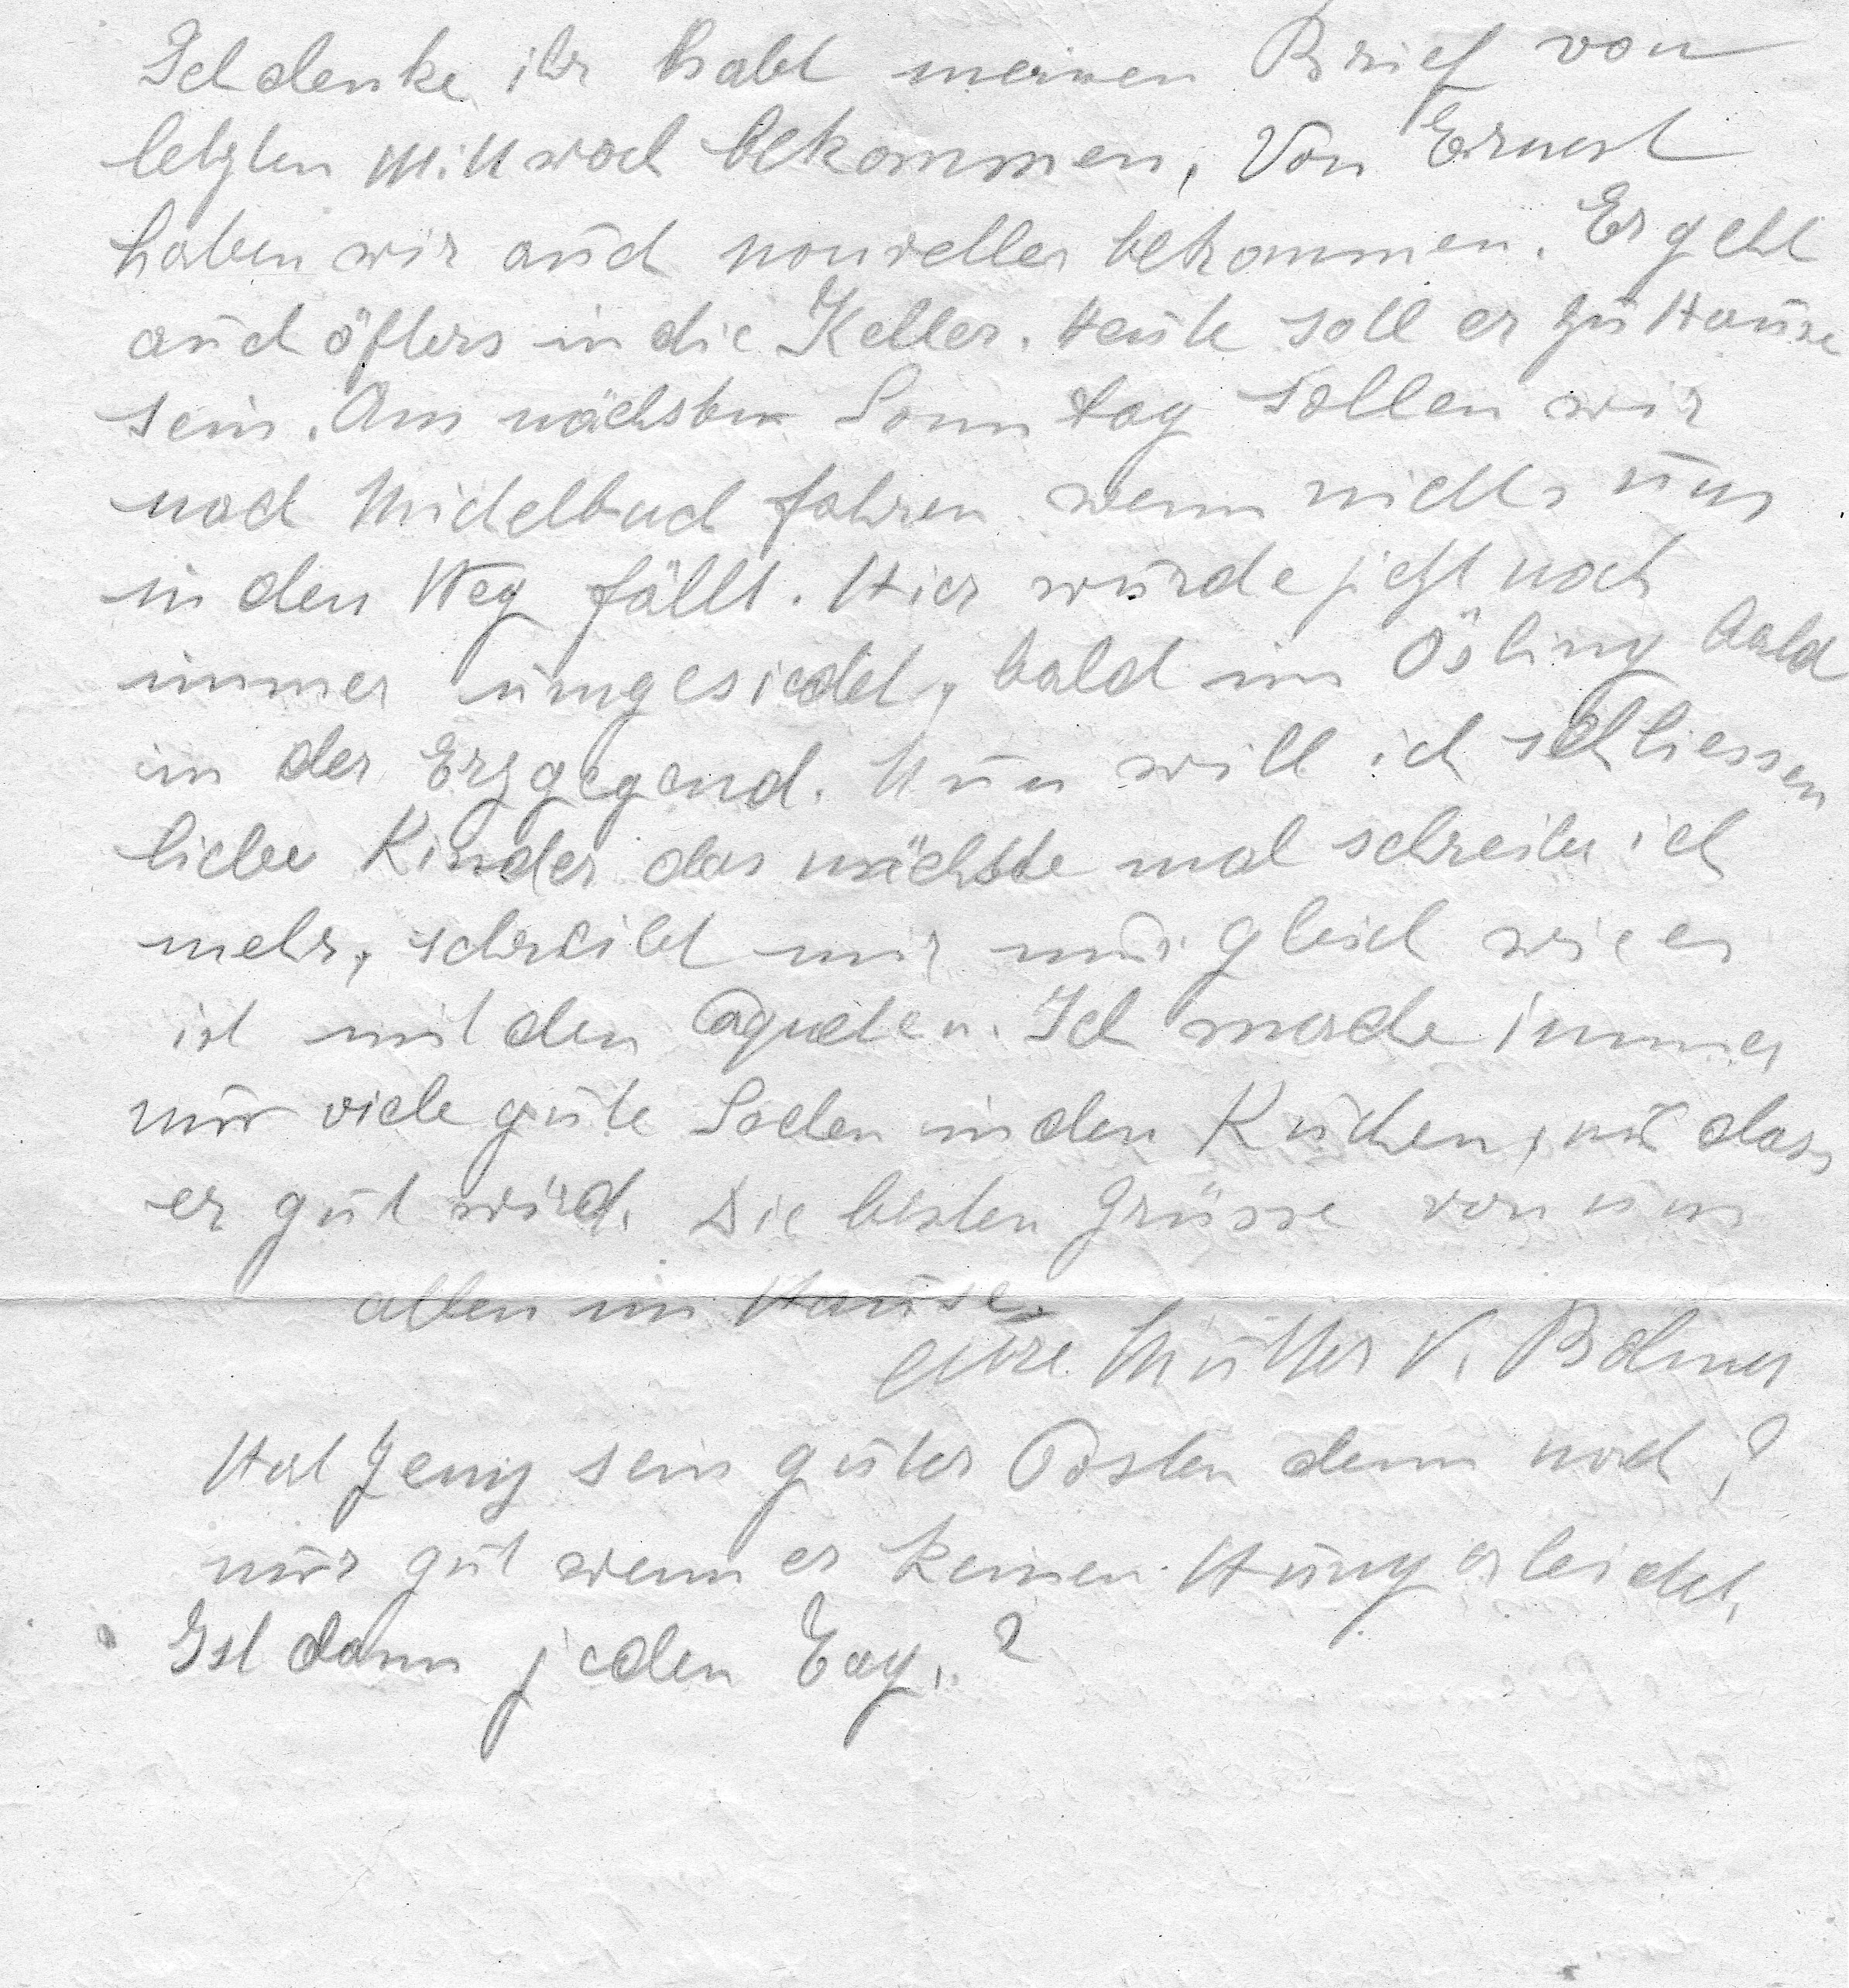 Ich denke ihr habt meinen Brief von
letzten Mittwoch bekommen, Von Ernest
haben wir auch nouvelles bekommen. Er geht
auch öfters in die Keller. Heute soll er zu Hause
sein. Am nächsten Sonntag sollen wir
nach Michelbuch fahren wenn nichts uns
in den Weg fällt. Hier wurde jetzt noch
immer umgesiedelt, bald im Ösling bald
in der Erzgegend. Nun will ich schliessen
liebe Kinder das nächste mal schreibe ich
mehr, schreibt mir nur gleich wie es
ist mit den Paqueten. Ich mache immer
nur viele gute Sachen in den Kuchen, nur dass
er gut wird. Die besten Grüsse von uns
allen im Hause.
eure Mutter V.
Hat Jemy sein guter Posten denn noch?
nur gut wenn er keinen Hunger leidet,
Ist dann jeden Tag.?